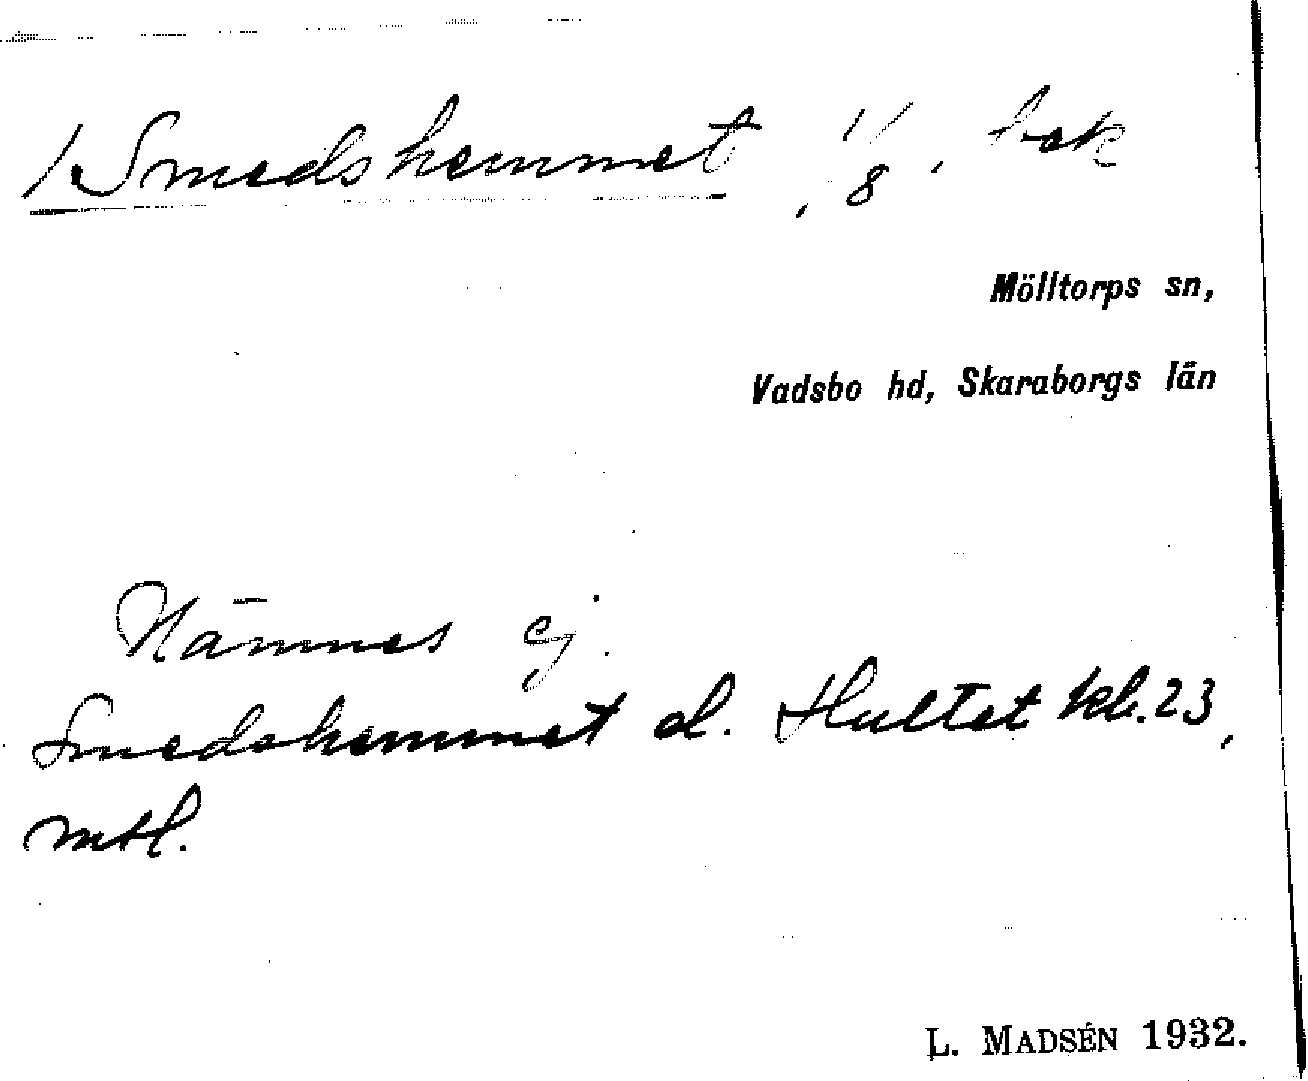 /Smedshemmet, 1/8, bek
Mölltorps sn,
Vadsbo hd, Skaraborgs län
Nämnes ej.
Smedshemmet el. Hultet kb. 23,
mtl.
L. MADSÉN 1932.